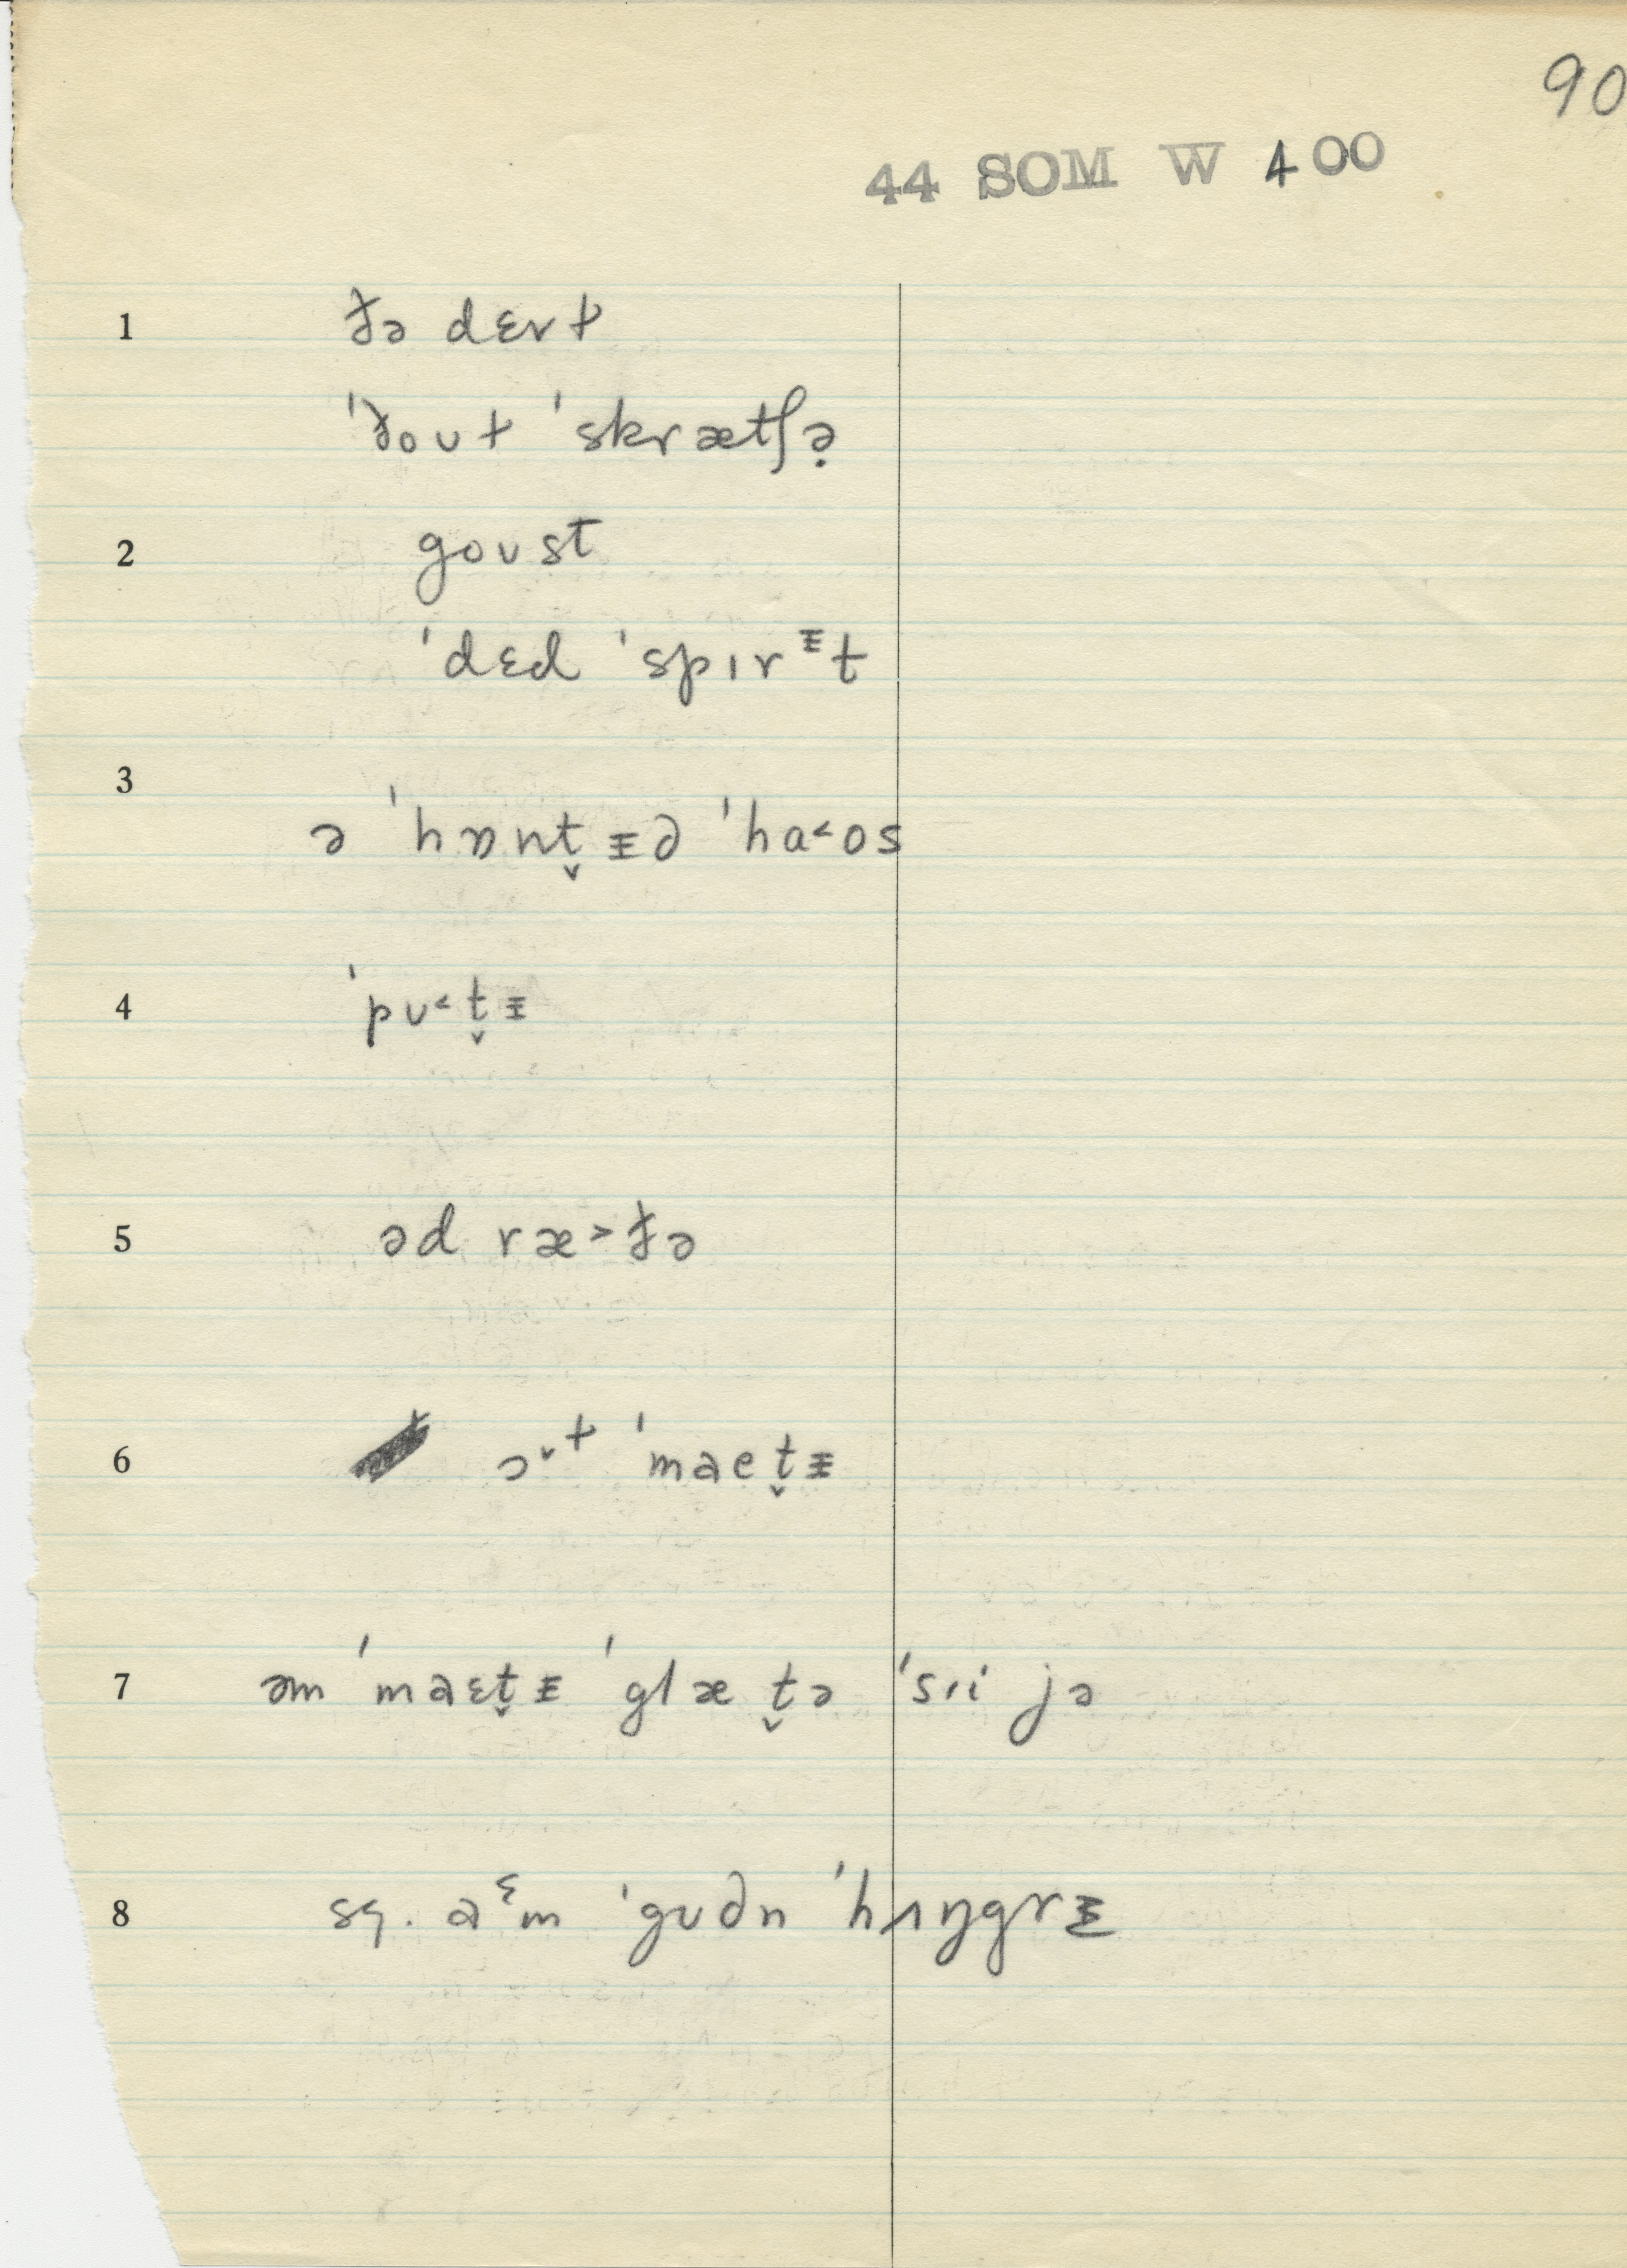 90
44 SOM W 400
1 ðə dɛvɫ
ˈðoʊɫ ˈskrætʃə̣
2 goʊst
ˈdɛd ˈspɪrᵻt
3 ə ˈhɒnt̬ᵻd ˈha˂os
4 ˈpʊ˂t̬ᵻ
5 əd ræ˃ðə
6 ɔ˅ɫ ˈmaet̬ᵻ
7 əm ˈmaɛt̬ᵻ ˈglæt̬ə ˈsɪi jə
8 sq. aᵋm ˈgʊdn ˈhʌŋgrᵻ